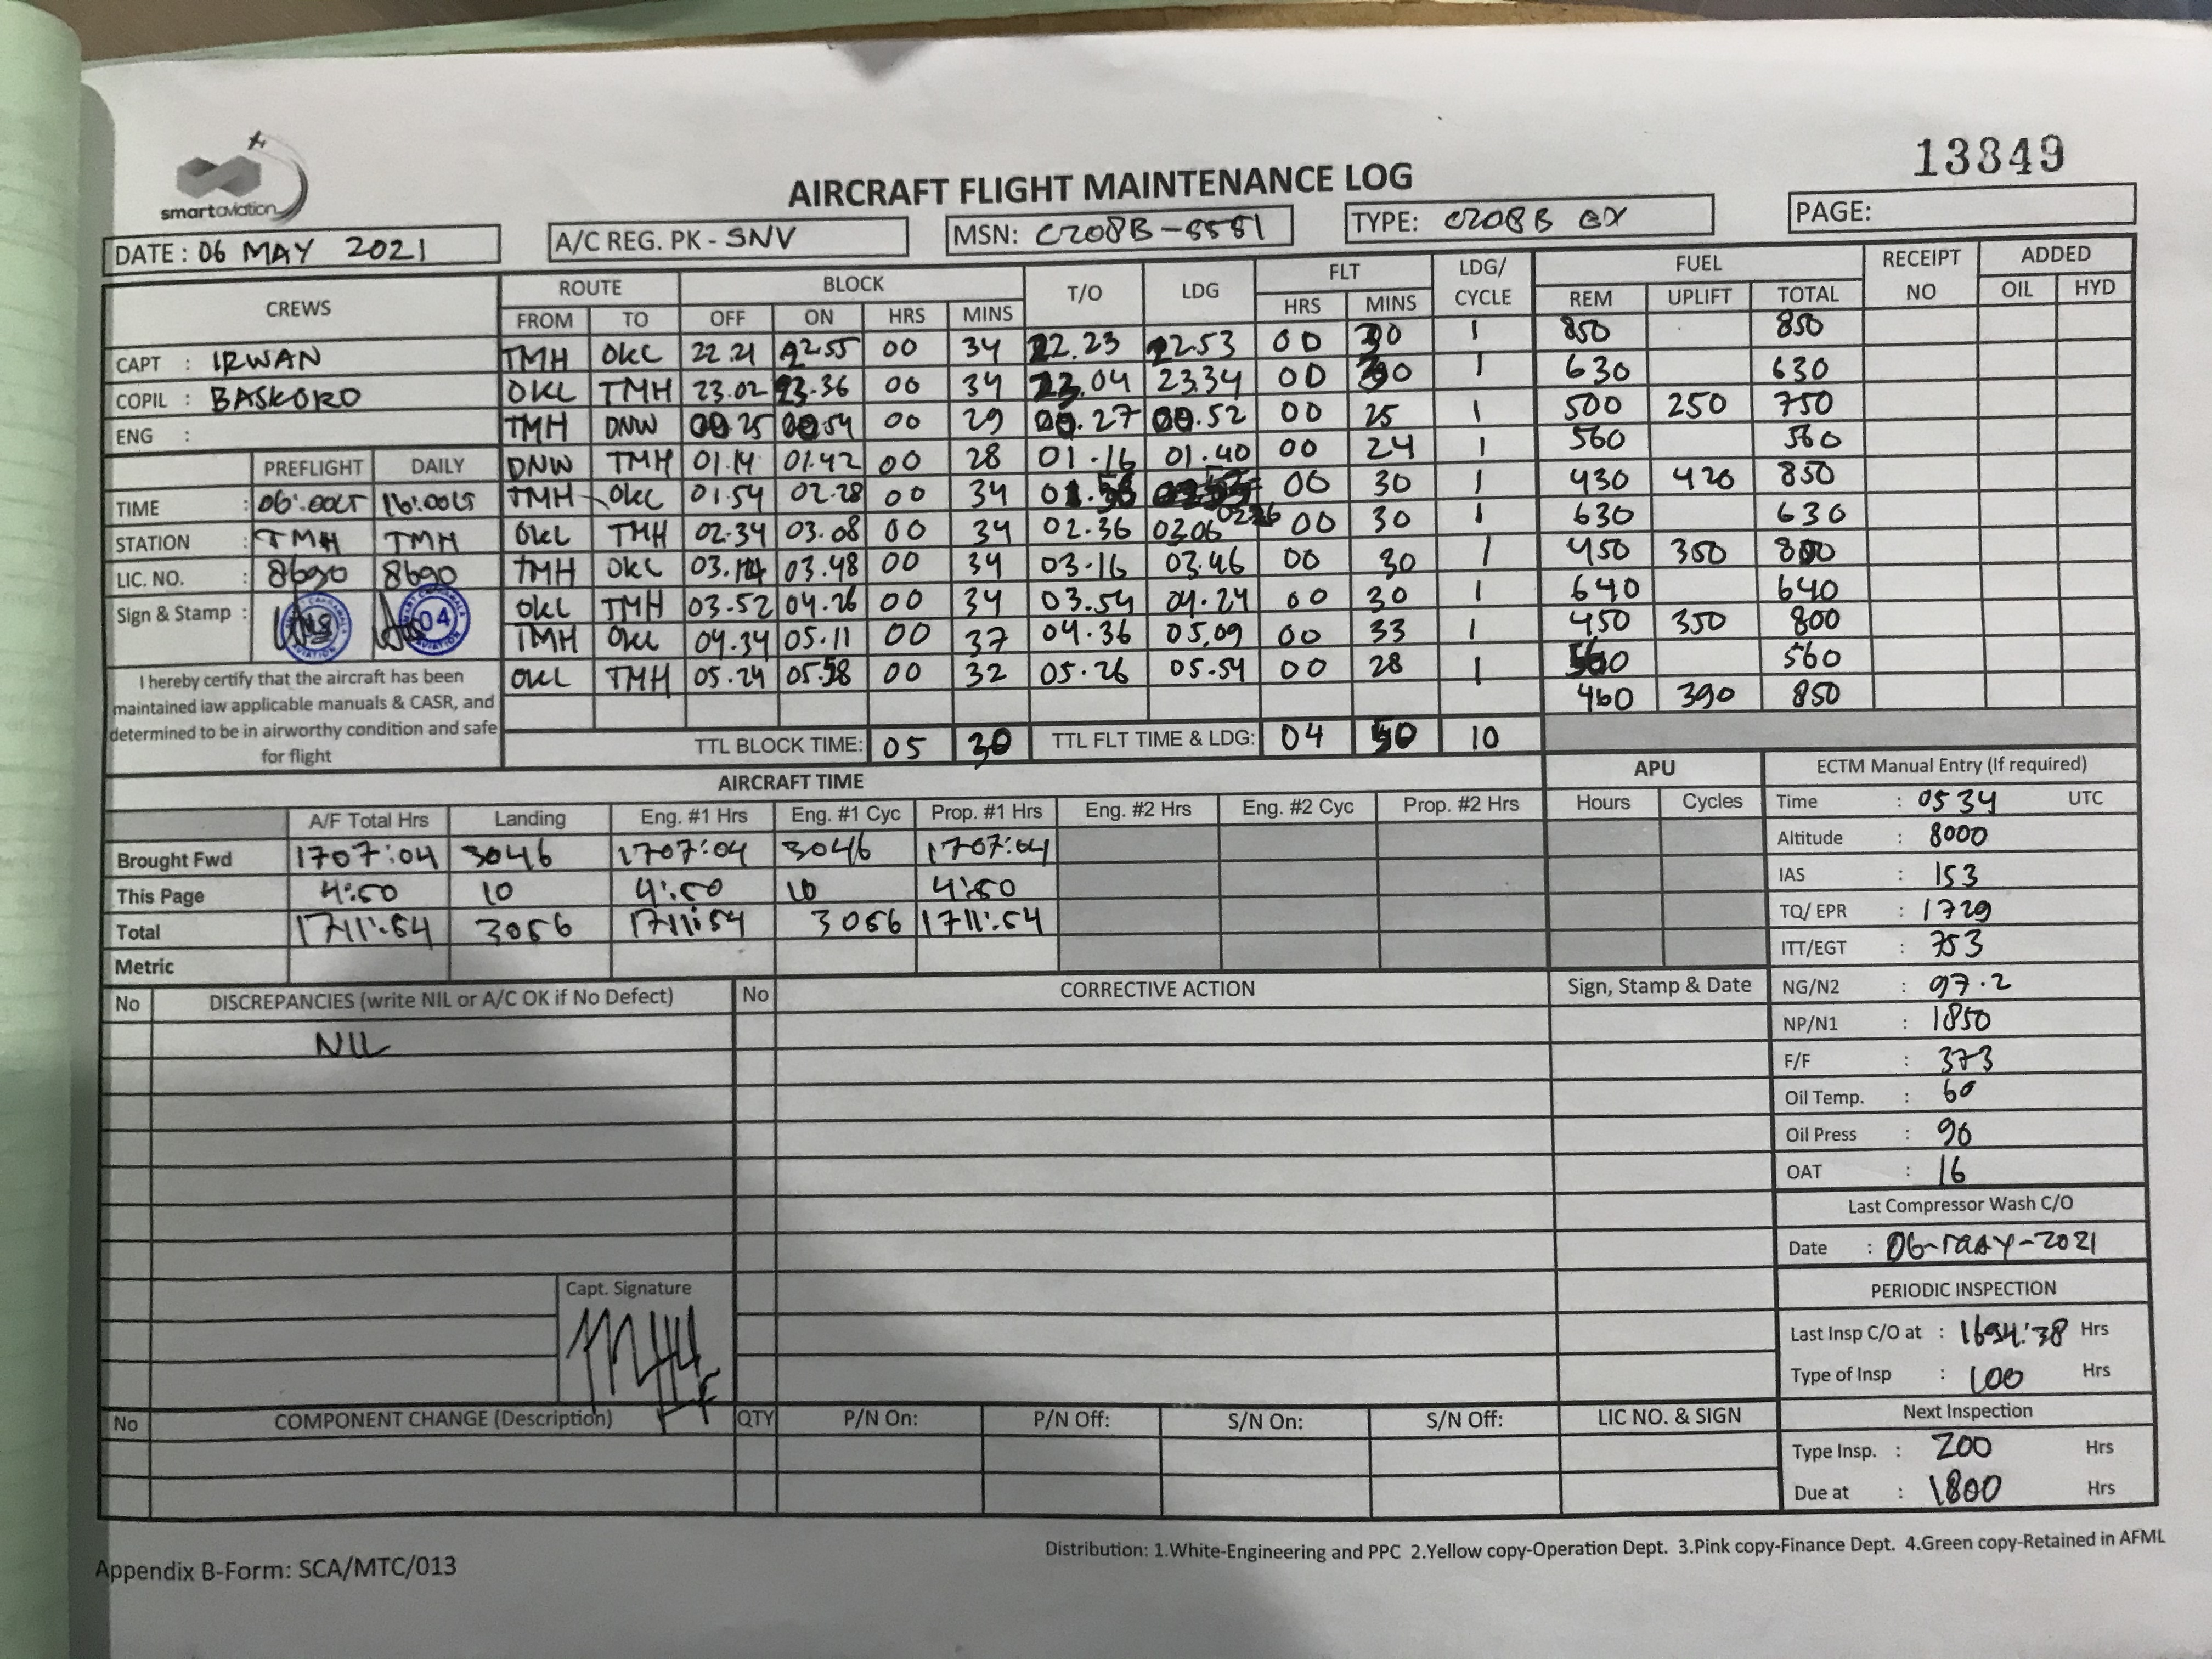 13849
smartaviation
AIRCRAFT FLIGHT MAINTENANCE LOG
DATE : 06 MAY 2021 A/C REG. PK - SNV MSN: C208B-5581 TYPE: C208B EX PAGE:
CREWS ROUTE BLOCK T/O LDG FLT LDG/ CYCLE FUEL RECEIPT NO ADDED
FROM TO OFF ON HRS MINS HRS MINS REM UPLIFT TOTAL OIL HYD
CAPT : IRWAN TMH OKL 22.21 22.55 00 34 22.23 22.53 00 30 1 850 850
COPIL : BASKORO OKL TMH 23.02 23.36 00 34 23.04 23.34 00 30 1 630 630
ENG : TMH DNW 00.25 00.54 00 29 00.27 00.52 00 25 1 500 250 750
PREFLIGHT DAILY DNW TMH 01.14 01.42 00 28 01.16 01.40 00 24 1 560 560
TIME : 06:00LT 16:00LT TMH OKL 01.54 02.28 00 34 01.56 02.26 00 30 1 430 420 850
STATION : TMH TMH OKL TMH 02.34 03.08 00 34 02.36 03.06 00 30 1 630 630
LIC. NO. : 8690 8690 TMH OKL 03.14 03.48 00 34 03.16 03.46 00 30 1 450 350 800
Sign & Stamp : 04 AVIATION OKL TMH 03.52 04.26 00 34 03.54 04.24 00 30 1 640 640
TMH OKL 04.34 05.11 00 37 04.36 05.09 00 33 1 450 350 800
OKL TMH 05.24 05.58 00 32 05.26 05.54 00 28 1 560 560
460 390 850
I hereby certify that the aircraft has been
maintained iaw applicable manuals & CASR, and
determined to be in airworthy condition and safe
for flight
TTL BLOCK TIME: 05 30 TTL FLT TIME & LDG: 04 50 10
AIRCRAFT TIME APU ECTM Manual Entry (If required)
A/F Total Hrs Landing Eng. #1 Hrs Eng. #1 Cyc Prop. #1 Hrs Eng. #2 Hrs Eng. #2 Cyc Prop. #2 Hrs Hours Cycles
Time : 0534 UTC
Brought Fwd 1707:04 3046 1707:04 3046 1707:04
Altitude : 8000
This Page 4:50 10 4:50 10 4:50
IAS : 153
Total 1711:54 3056 1711:54 3056 1711:54
TQ/ EPR : 1729
Metric
ITT/EGT : 753
No DISCREPANCIES (write NIL or A/C OK if No Defect) No CORRECTIVE ACTION Sign, Stamp & Date
NIL
NG/N2 : 97.2
NP/N1 : 1850
F/F : 373
Oil Temp. : 60
Oil Press : 90
OAT : 16
Last Compressor Wash C/O
Date : 06-MAY-2021
Capt. Signature
PERIODIC INSPECTION
Last Insp C/O at : 1694:38 Hrs
Type of Insp : 100 Hrs
No COMPONENT CHANGE (Description) QTY P/N On: P/N Off: S/N On: S/N Off: LIC NO. & SIGN
Next Inspection
Type Insp. : 200 Hrs
Due at : 1800 Hrs
Distribution: 1.White-Engineering and PPC 2.Yellow copy-Operation Dept. 3.Pink copy-Finance Dept. 4.Green copy-Retained in AFML
Appendix B-Form: SCA/MTC/013